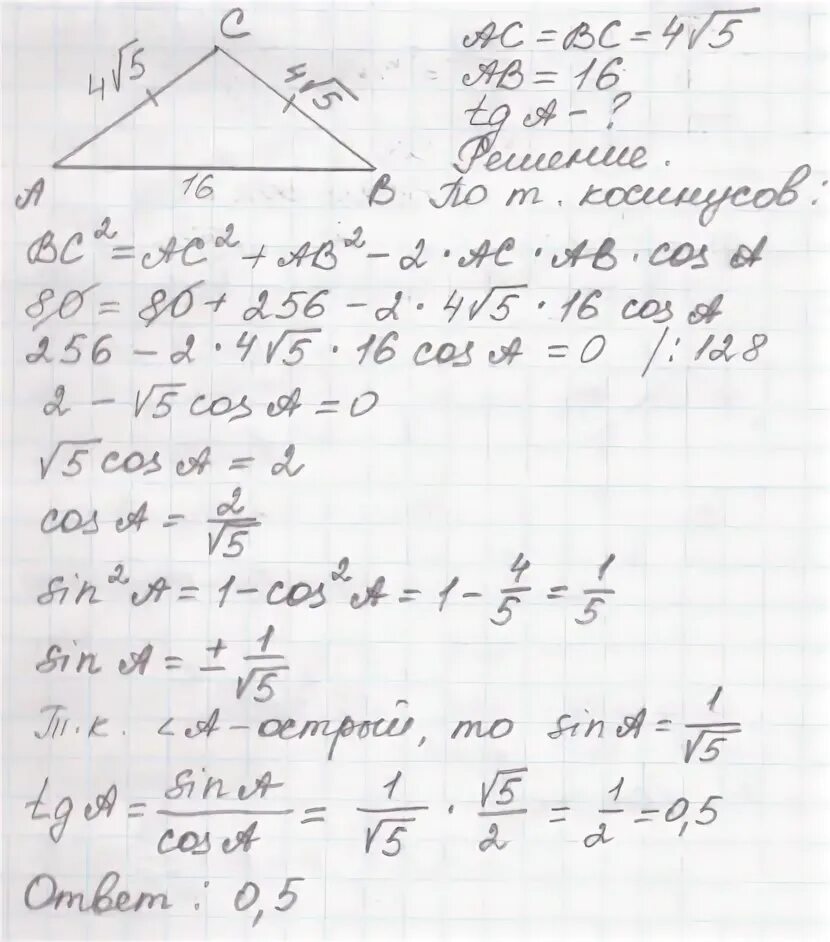 C
4√5
4√5
A
16
B
AC = BC = 4√5
AB = 16
tg A - ?
Решение.
По т. косинусов:
BC² = AC² + AB² - 2 · AC · AB · cos A
80 = 80 + 256 - 2 · 4√5 · 16 cos A
256 - 2 · 4√5 · 16 cos A = 0 /: 128
2 - √5 cos A = 0
√5 cos A = 2
cos A = 2/√5
sin² A = 1 - cos² A = 1 - 4/5 = 1/5
sin A = ± 1/√5
Т.к. ∠A - острый, то sin A = 1/√5
tg A = sin A/cos A = 1/√5 · √5/2 = 1/2 = 0,5
Ответ: 0,5